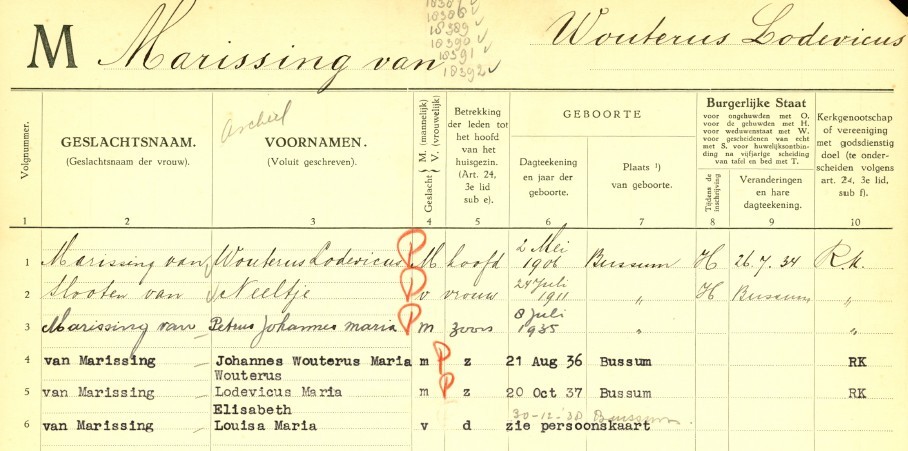 18386 ✓
18389 ✓
18390 ✓
18391 ✓
18392 ✓
M Marissing van Wouterus Lodevicus
Archief
Volgnummer.
GESLACHTSNAAM.
(Geslachtsnaam der vrouw).
VOORNAMEN.
(Voluit geschreven).
Geslacht M. (mannelijk) V. (vrouwelijk)
Betrekking
der leden tot
het hoofd
van het
huisgezin.
(Art. 24,
3e lid
sub e).
GEBOORTE
Dagteekening
en jaar der
geboorte.
Plaats ¹)
van geboorte.
Burgerlijke Staat
voor ongehuwden met O.
voor de gehuwden met H.
voor weduwenstaat met W.
voor gescheidenen van echt
met S. voor huwelijksontbin-
ding na vijfjarige scheiding
van tafel en bed met T.
Tijdens de inschrijving
Veranderingen
en hare
dagteekening.
Kerkgenootschap
of vereeniging
met godsdienstig
doel (te onder-
scheiden volgens
art. 24, 3e lid,
sub f).
1 2 3 4 5 6 7 8 9 10
1 Marissing van Wouterus Lodevicus P M hoofd 2 Mei 1906 Bussum H 26.7.34 R.K.
2 Slooten van Neeltje P v vrouw 24 Juli 1911 " H Bussum "
3 Marissing van Petrus Johannes maria P m zoon 8 Juli 1935 " "
4 van Marissing Johannes Wouterus Maria m P z 21 Aug 36 Bussum RK
Wouterus
5 van Marissing Lodevicus Maria m P z 20 Oct 37 Bussum RK
Elisabeth 30-12-38 Bussum.
6 van Marissing Louisa Maria v d zie persoonskaart RK